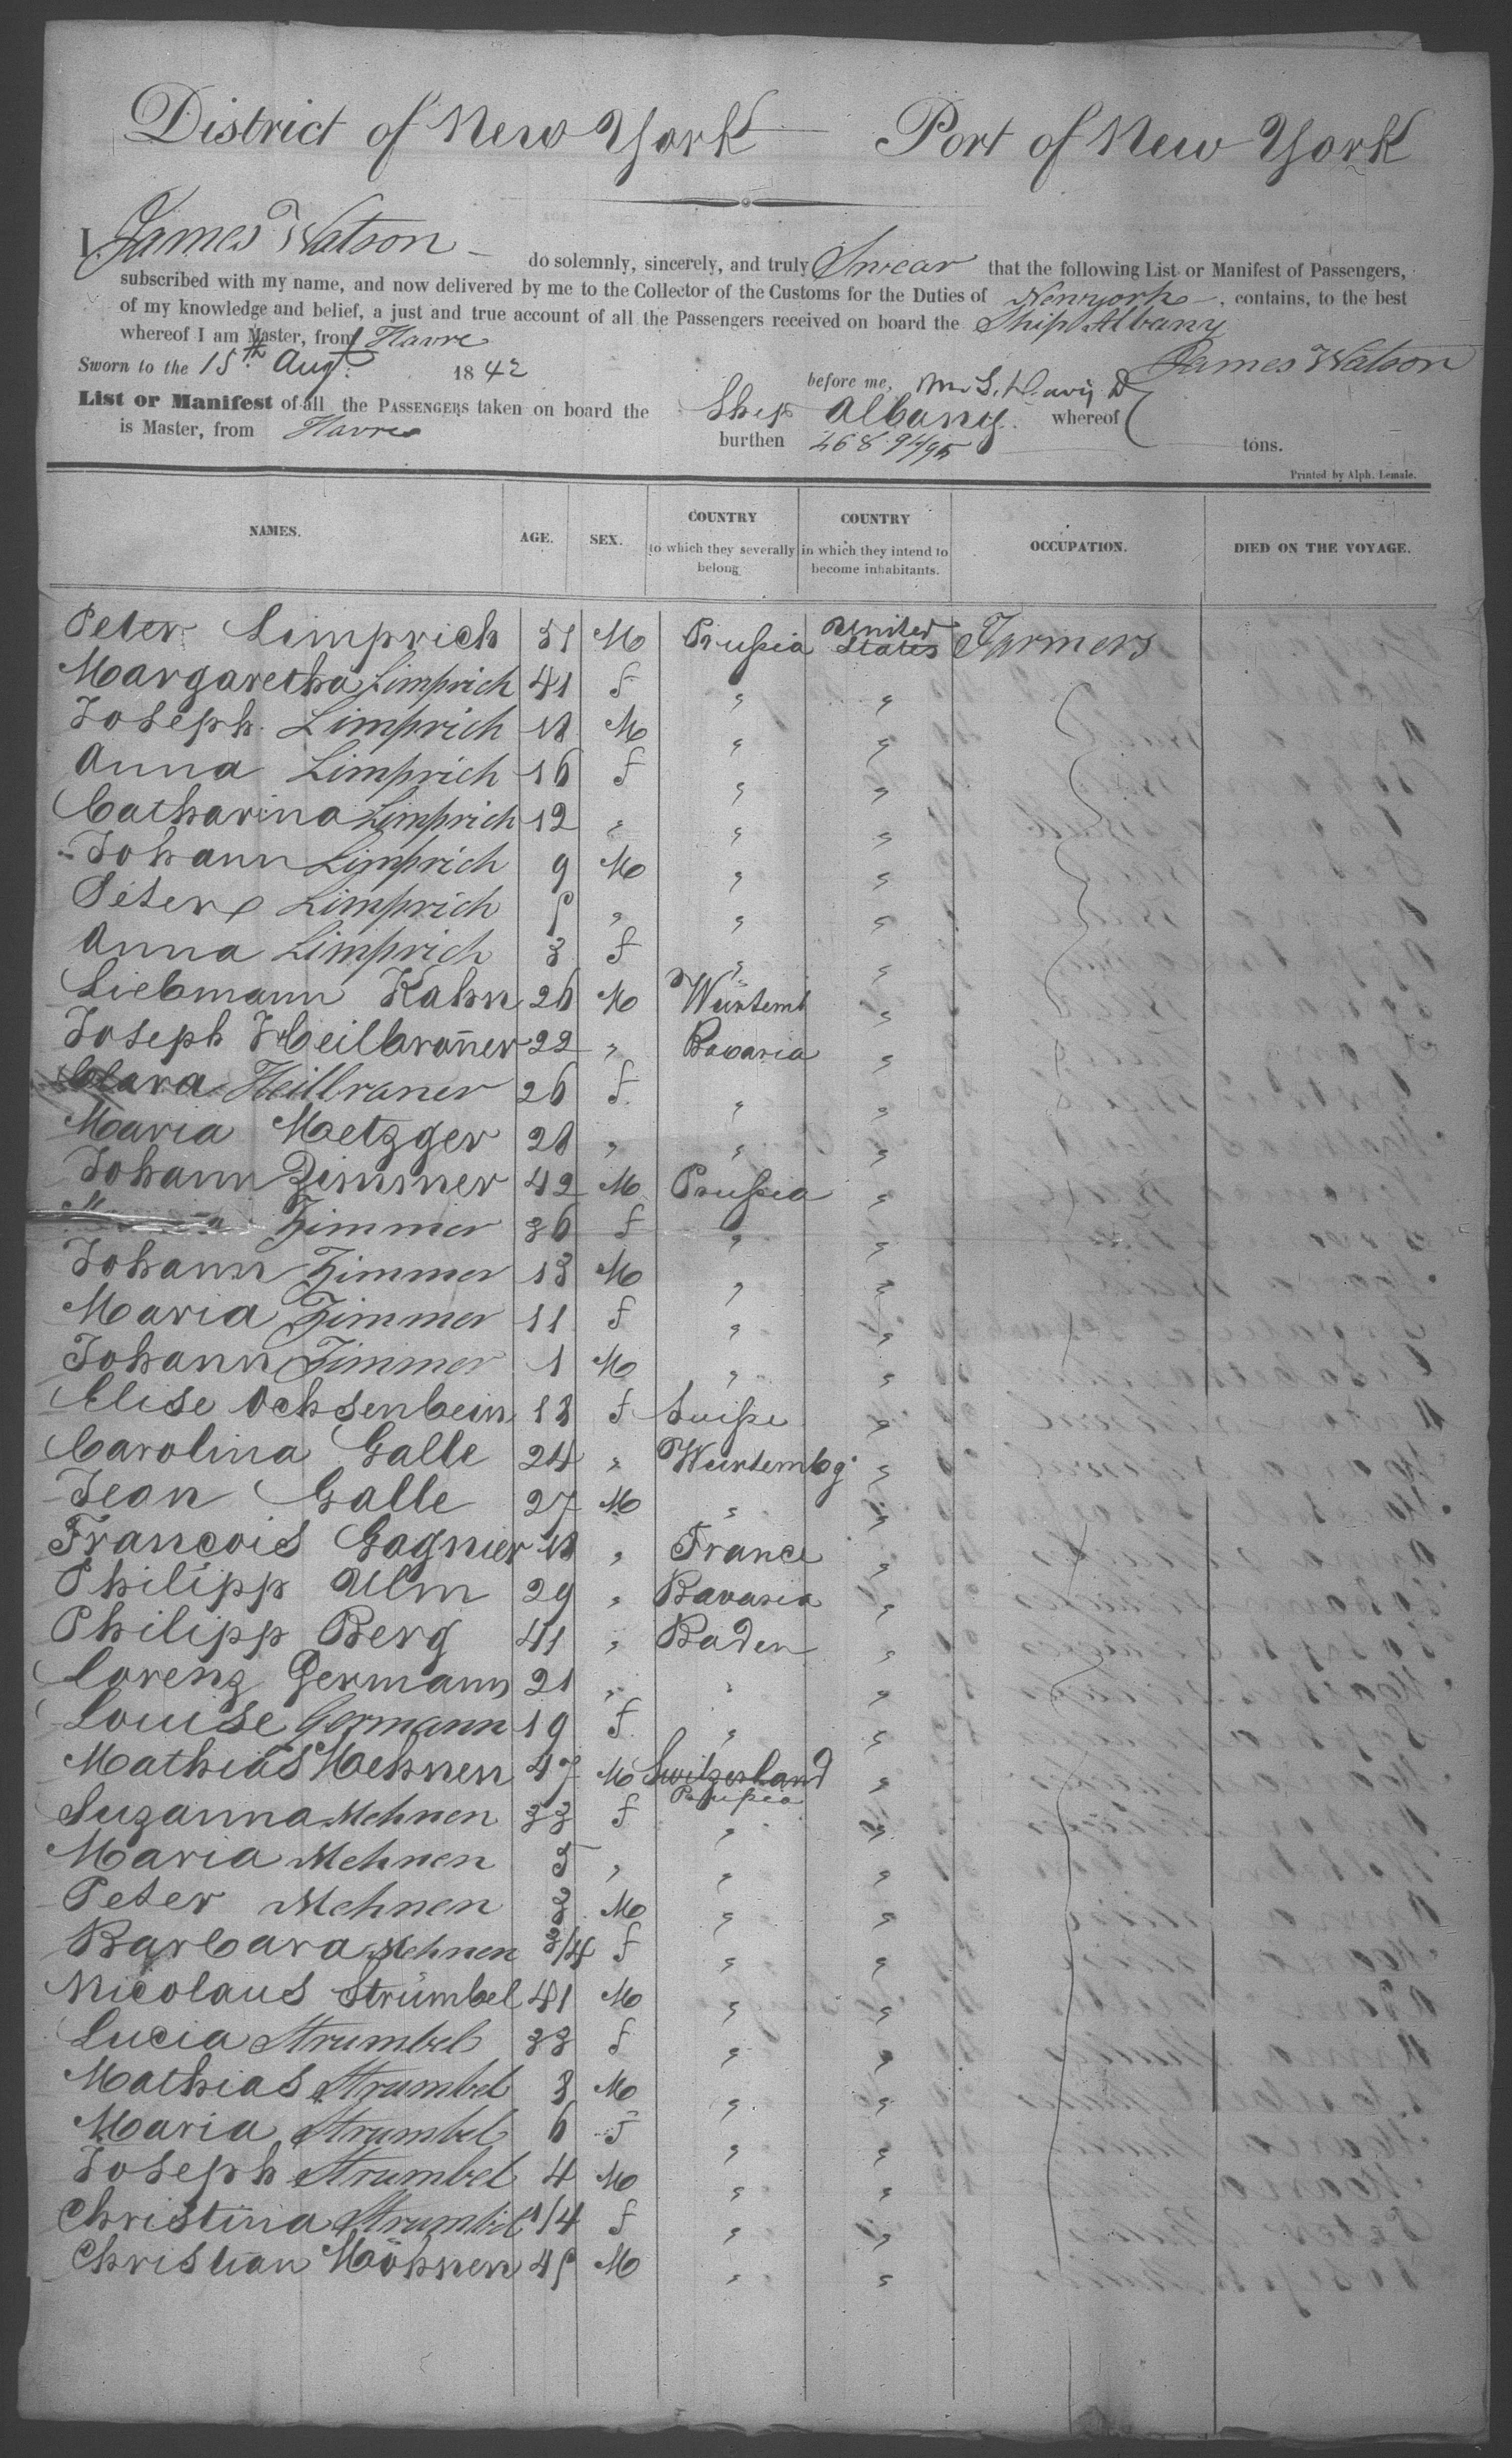 District of New York Port of New York
I, James Watson do solemnly, sincerely, and truly Swear that the following List or Manifest of Passengers,
subscribed with my name, and now delivered by me to the Collector of the Customs for the Duties of Newyork, contains, to the best
of my knowledge and belief, a just and true account of all the Passengers received on board the Ship Albany
whereof I am Master, from Havre
James Watson
Sworn to the 15th Augt. 1842 before me,
List or Manifest of all the PASSENGERS taken on board the Ship Albany. whereof
is Master, from Havre burthen 468 94/95 tons.
Printed by Alph. Lemale.
NAMES. AGE. SEX. COUNTRY to which they severally belong COUNTRY in which they intend to become inhabitants. OCCUPATION. DIED ON THE VOYAGE.
Peter Limprich 51 M Prussia United States Farmers
Margaretha Limprich 41 f " "
Joseph Limprich 18 M " "
Anna Limprich 16 f " "
Catharina Limprich 12 " " "
Johann Limprich 9 M " "
Peter Limprich 5 " " "
Anna Limprich 3 f " "
Liebmann Kahn 26 M Würtemb "
Joseph Heilbronner 22 " Bavaria "
Clara Heilbraner 26 f " "
Maria Metzger 28 " " "
Johann Zimmer 42 M Prussia "
Zimmer 36 f " "
Johann Zimmer 13 M " "
Maria Zimmer 11 f " "
Johann Zimmer 1 M " "
Elise Ochsenbein 18 f Suisse "
Carolina Galle 24 " Würtembg. "
Jean Galle 27 M " "
Francois Gagnier 18 " France "
Philipp Ulm 29 " Bavaria "
Philipp Berg 41 " Baden "
Lorenz Germann 21 " " "
Louise Germann 19 f " "
Mathias Mehnen 47 M Switzerland Prussia "
Suzanna Mehnen 33 f " "
Maria Mehnen 5 " " "
Peter Mehnen 3 M " "
Barbara Mehnen 3/4 f " "
Nicolaus Strumbel 41 M " "
Lucia Strumbel 33 f " "
Mathias Strumbel 8 M " "
Maria Strumbel 6 f " "
Joseph Strumbel 4 M " "
Christina Strumbel 1/4 f " "
Christian Möhnen 45 M " "